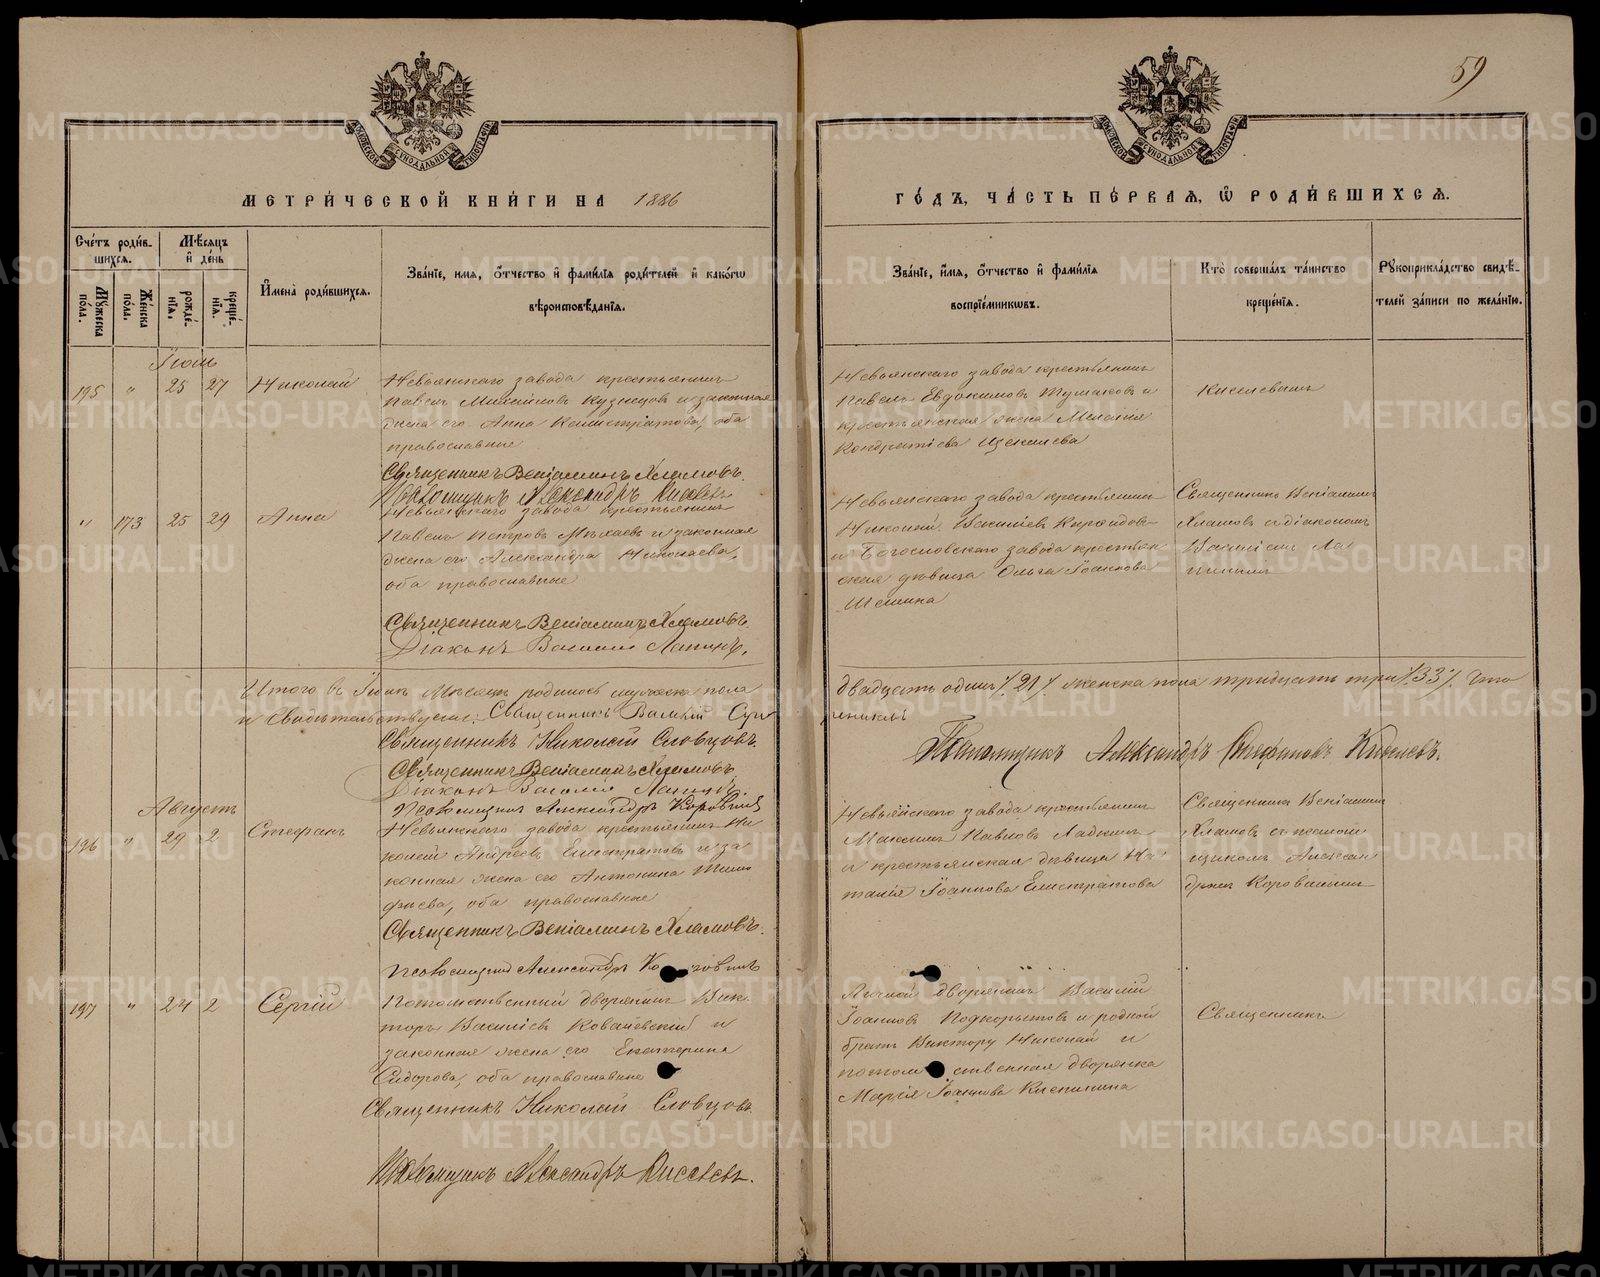 59
МОСКОВСКОЙ СУНОДАЛЬНОЙ ТИПОГРАФІИ
МОСКОВСКОЙ СУНОДАЛЬНОЙ ТИПОГРАФІИ
МЕТРИ́ЧЕСКОЙ КНИ́ГИ НА 1886
ГО́ДЪ, ЧА́СТЬ ПЕ́РВАЯ, Ѡ РОДИ́ВШИХСЯ.
Сче́тъ роди́вшихся.
Мѣ́сяцъ и де́нь
Мꙋ́жеска по́ла.
Же́нска по́ла.
рожде́нїя.
креще́нїя.
И҆мена̀ роди́вшихся.
Зва́нїе, и҆мя, ѻ҆́тчество и҆ фами́лїя роди́телей и҆ како́гѡ вѣроисповѣ́данїя.
Зва́нїе, и҆́мя, ѻ҆́тчество и҆ фами́лїя воспрїе́мникѡвъ.
Кто̀ соверша́лъ та́инство креще́нїя.
Рꙋкоприкла́дство свидѣ́телей за́писи по жела́нїю.
Іюль
195 " 25 27 Николай
Невьянскаго завода крестьянинъ
Павелъ Михайловъ Кузнецов и законная
жена его Анна Калистратова, оба
православные
Священникъ Веніаминъ Хламовъ.
Псаломщикъ Александръ Киселевъ
Невьянскаго завода крестьянинъ
Павелъ Евдокимовъ Тушаковъ и
крестьянская жена Меланія
Кондратіева Щекалева
" 173 25 29 Анна
Невьянскаго завода крестьянинъ
Павелъ Петровъ и законная
жена его Александра Николаева,
оба православные
Священникъ Веніаминъ Хламовъ.
Діаконъ Василій Лапинъ.
Невьянскаго завода крестьянинъ
Николай Василіев
и Богословскаго завода крестьян
ская дѣвица Ольга Іоаннова
Священникъ Веніаминъ
Хламовъ с діакономъ
Василіемъ Ла
пинымъ
Итого въ Іюлѣ Мѣсяцѣ родилось мужеска пола двадцать одинъ /21/ женска пола тридцать три /33/. Что
и Свидѣтельствуемъ: Священникъ
Священникъ Николай Словцовъ.
Псаломщикъ Александръ Стефановъ Киселевъ.
Священникъ Веніаминъ Хламовъ
Діаконъ Василій Лапинъ.
Псаломщикъ Александръ Коровинъ
Августъ
196 " 29 2 Стефанъ
Невьянскаго завода крестьянинъ Ни
колай Андреевъ Елистратовъ и за
конная жена его Антонина Тимо
фѣева, оба православные
Священникъ Веніаминъ Хламовъ.
Псаломщикъ Александръ
Невьянскаго завода крестьянинъ
Максимъ Павловъ
и крестьянская дѣвица На
талія Іоаннова Елистратова
Священникъ Веніаминъ
Хламовъ съ псалом
щикомъ Алексан
дромъ Коровинымъ
197 " 24 2 Сергій
Потомственный дворянинъ Вик
торъ Василіевъ Ковалевскій и
законная жена его Екатерина
Сидорова, оба православные
Священникъ Николай Словцовъ
Псаломщикъ Александръ Киселевъ.
Личной дворянинъ Василій
Іоанновъ Подкорытовъ и родной
братъ Виктору Николай и
потом ственная дворянка
Марія Іоаннова
Священникъ
METRIKI.GASO-URAL.RU